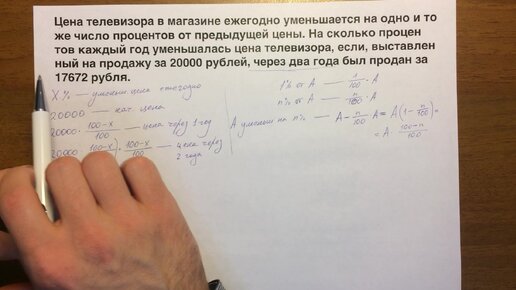 Цена телевизора в магазине ежегодно уменьшается на одно и то
же число процентов от предыдущей цены. На сколько процен
тов каждый год уменьшалась цена телевизора, если, выставлен
ный на продажу за 20000 рублей, через два года был продан за
17672 рубля.
X% — уменьш. цена ежегодно
20000 — нач. цена
20000 · (100-x)/100 — цена через 1 год
20000 (100-x) · (100-x)/100 — цена через
2 года
1% от A — 1/100 · A
n% от A — n/100 · A
A уменьш на n% — A - n/100 · A = A(1 - n/100) =
= A · (100-n)/100